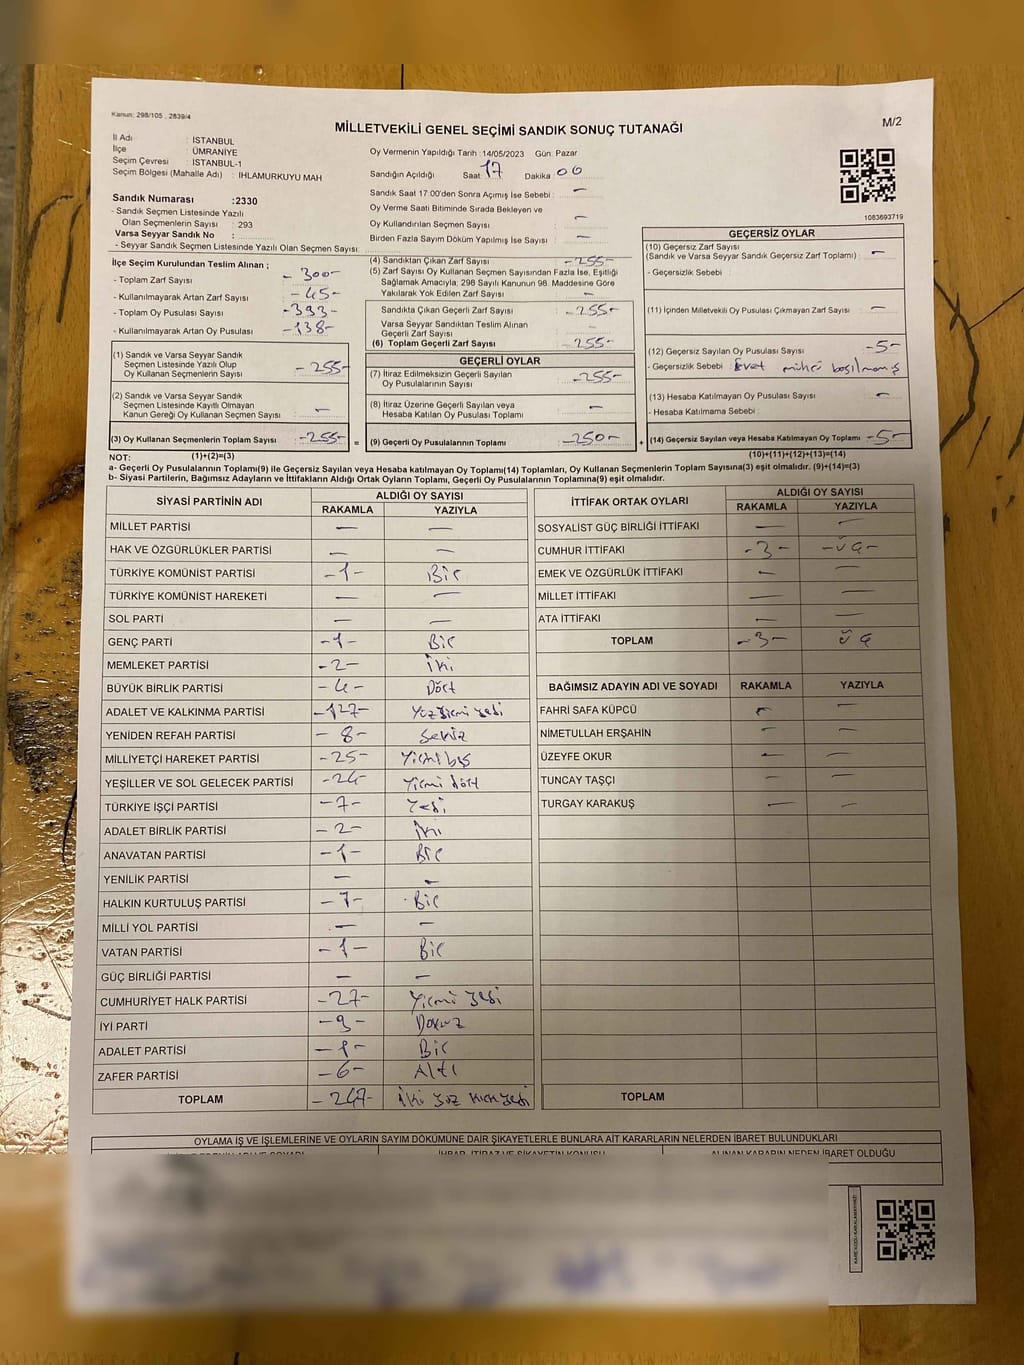 Kanun: 298/105 , 2839/4
MİLLETVEKİLİ GENEL SEÇİMİ SANDIK SONUÇ TUTANAĞI
M/2
İl Adı : İSTANBUL
İlçe : ÜMRANİYE
Seçim Çevresi : İSTANBUL-1
Seçim Bölgesi (Mahalle Adı) : IHLAMURKUYU MAH
Sandık Numarası :2330
- Sandık Seçmen Listesinde Yazılı
Olan Seçmenlerin Sayısı : 293
Varsa Seyyar Sandık No :
- Seyyar Sandık Seçmen Listesinde Yazılı Olan Seçmen Sayısı:
Oy Vermenin Yapıldığı Tarih :14/05/2023 Gün: Pazar
Sandığın Açıldığı Saat 17 Dakika 00
Sandık Saat 17:00'den Sonra Açımış İse Sebebi : -
Oy Verme Saati Bitiminde Sırada Bekleyen ve
Oy Kullandırılan Seçmen Sayısı : -
Birden Fazla Sayım Döküm Yapılmış İse Sayısı : -
1083693719
İlçe Seçim Kurulundan Teslim Alınan ;
- Toplam Zarf Sayısı : -300-
- Kullanılmayarak Artan Zarf Sayısı : -45-
- Toplam Oy Pusulası Sayısı : -393-
- Kullanılmayarak Artan Oy Pusulası : -138-
(1) Sandık ve Varsa Seyyar Sandık
Seçmen Listesinde Yazılı Olup
Oy Kullanan Seçmenlerin Sayısı : -255-
(2) Sandık ve Varsa Seyyar Sandık
Seçmen Listesinde Kayıtlı Olmayan
Kanun Gereği Oy Kullanan Seçmen Sayısı : -
(3) Oy Kullanan Seçmenlerin Toplam Sayısı : -255- =
(4) Sandıktan Çıkan Zarf Sayısı : -255-
(5) Zarf Sayısı Oy Kullanan Seçmen Sayısından Fazla İse, Eşitliği
Sağlamak Amacıyla; 298 Sayılı Kanunun 98. Maddesine Göre
Yakılarak Yok Edilen Zarf Sayısı : -
Sandıkta Çıkan Geçerli Zarf Sayısı : -255-
Varsa Seyyar Sandıktan Teslim Alınan
Geçerli Zarf Sayısı : -
(6) Toplam Geçerli Zarf Sayısı : -255-
GEÇERLİ OYLAR
(7) İtiraz Edilmeksizin Geçerli Sayılan
Oy Pusulalarının Sayısı : -255-
(8) İtiraz Üzerine Geçerli Sayılan veya
Hesaba Katılan Oy Pusulası Toplamı : -
(9) Geçerli Oy Pusulalarının Toplamı : -250- +
GEÇERSİZ OYLAR
(10) Geçersiz Zarf Sayısı
(Sandık ve Varsa Seyyar Sandık Geçersiz Zarf Toplamı) : -
- Geçersizlik Sebebi :
(11) İçinden Milletvekili Oy Pusulası Çıkmayan Zarf Sayısı : -
(12) Geçersiz Sayılan Oy Pusulası Sayısı : -5-
- Geçersizlik Sebebi : Evet mührü basılmamış
(13) Hesaba Katılmayan Oy Pusulası Sayısı : -
- Hesaba Katılmama Sebebi :
(14) Geçersiz Sayılan veya Hesaba Katılmayan Oy Toplamı : -5-
NOT: (1)+(2)=(3) (10)+(11)+(12)+(13)=(14)
a- Geçerli Oy Pusulalarının Toplamı(9) ile Geçersiz Sayılan veya Hesaba katılmayan Oy Toplamı(14) Toplamları, Oy Kullanan Seçmenlerin Toplam Sayısına(3) eşit olmalıdır. (9)+(14)=(3)
b- Siyasi Partilerin, Bağımsız Adayların ve İttifakların Aldığı Oyların Toplamı, Geçerli Oy Pusulalarının Toplamına(9) eşit olmalıdır.
SİYASİ PARTİNİN ADI ALDIĞI OY SAYISI
RAKAMLA YAZIYLA
MİLLET PARTİSİ - -
HAK VE ÖZGÜRLÜKLER PARTİSİ - -
TÜRKİYE KOMÜNİST PARTİSİ -1- Bir
TÜRKİYE KOMÜNİST HAREKETİ - -
SOL PARTİ - -
GENÇ PARTİ -1- Bir
MEMLEKET PARTİSİ -2- İki
BÜYÜK BİRLİK PARTİSİ -4- Dört
ADALET VE KALKINMA PARTİSİ -127- Yüz yirmi yedi
YENİDEN REFAH PARTİSİ -8- Sekiz
MİLLİYETÇİ HAREKET PARTİSİ -25- Yirmi beş
YEŞİLLER VE SOL GELECEK PARTİSİ -24- Yirmi dört
TÜRKİYE İŞÇİ PARTİSİ -7- Yedi
ADALET BİRLİK PARTİSİ -2- İki
ANAVATAN PARTİSİ -1- Bir
YENİLİK PARTİSİ - -
HALKIN KURTULUŞ PARTİSİ -1- Bir
MİLLİ YOL PARTİSİ - -
VATAN PARTİSİ -1- Bir
GÜÇ BİRLİĞİ PARTİSİ - -
CUMHURİYET HALK PARTİSİ -27- Yirmi yedi
İYİ PARTİ -9- Dokuz
ADALET PARTİSİ -1- Bir
ZAFER PARTİSİ -6- Altı
TOPLAM -247- İki yüz kırk yedi
İTTİFAK ORTAK OYLARI ALDIĞI OY SAYISI
RAKAMLA YAZIYLA
SOSYALİST GÜÇ BİRLİĞİ İTTİFAKI - -
CUMHUR İTTİFAKI -3- -üç-
EMEK VE ÖZGÜRLÜK İTTİFAKI - -
MİLLET İTTİFAKI - -
ATA İTTİFAKI - -
TOPLAM -3- üç
BAĞIMSIZ ADAYIN ADI VE SOYADI RAKAMLA YAZIYLA
FAHRİ SAFA KÜPCÜ - -
NİMETULLAH ERŞAHİN - -
ÜZEYFE OKUR - -
TUNCAY TAŞÇI - -
TURGAY KARAKUŞ - -
TOPLAM
OYLAMA İŞ VE İŞLEMLERİNE VE OYLARIN SAYIM DÖKÜMÜNE DAİR ŞİKAYETLERLE BUNLARA AİT KARARLARIN NELERDEN İBARET BULUNDUKLARI
İHBAR, İTİRAZ VE ŞİKAYETİN KONUSU ALINAN KARARIN NEDEN İBARET OLDUĞU